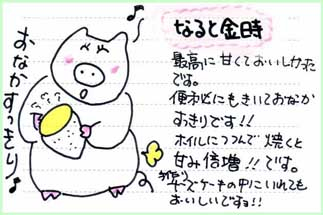 なると金時
最高に甘くておいしかった
です。
便秘にもきいておなか
すっきりです!!
ホイルにつつんで焼くと
甘み倍増!!です。
チーズケーキの中にいれても
おいしいですョ!!
おなかすっきり♪